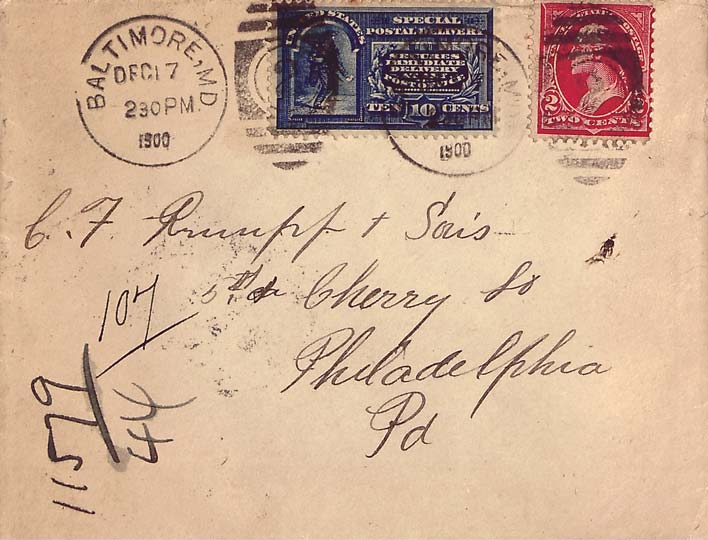 BALTIMORE, MD
DEC 17
230 PM
1900
UNITED STATES
SPECIAL
POSTAL DELIVERY
SECURES
IMMEDIATE
DELIVERY
TEN 10 CENTS
1900
2
TWO CENTS
C. F. Rumpf & Sons
5th & Cherry St
Philadelphia
Pa
107
1157
44